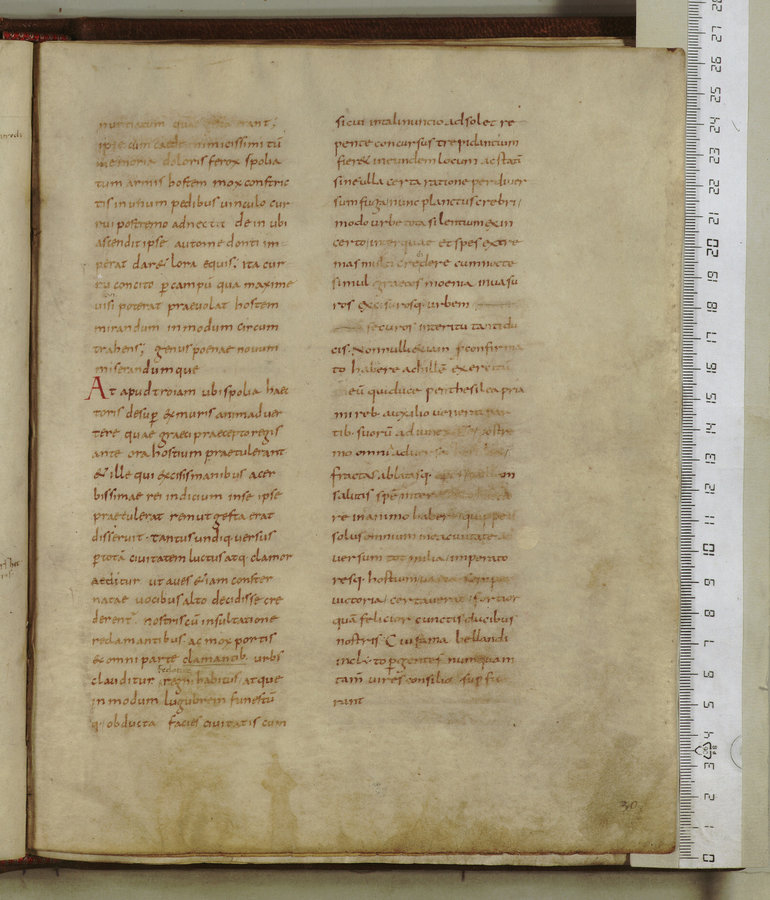 nuntiatum quae gesta erant;
ipse cum caede inimicissimi tū
memoria doloris ferox spolia
tum armis hostem mox constric
tis in unum pedibus vinculo cur
rui postremo adnectit dein ubi
ascendit ipse automedonti im
perat dar& lora equis. ita cur
ru concito p campū qua maxime
uisi poterat praeuolat hostem
mirandum in modum circum
trahens; genus poenae nouum
miserandumque
At apud troiam ubi spolia hec
toris desup ex muris animaduer
tere quae graeci praecepto regis
ante ora hostium praetulerant
& ille qui excisis manibus acer
bissimae rei indicium inse ipse
praetulerat rem ut gesta erat
disseruit. tantus undiq uersus
p totā ciuitatem luctus atq clamor
aeditur ut aues etiam conster
natae uocibus alto decidisse cre
derent. nostris cū insultatione
reclamantibus ac mox portis
ex omni parte clamantib. urbs
clauditur regni habitus atque
in modum lugubrem funestū
q obducta facies ciuitatis cum
sicui in tali nuncio adsolet re
pente concursus trepidantium
fier& in eundem locum ac statī
sine ulla certa ratione per diuer
sum fuga nunc planctus crebri
modo urbe tota silentium ex in
certo. inter quae et spes extre
mas multi credere cum nocte
simul graecos moenia inuasu
ros excisurosq urbem
securos interitu tanti du
cis. Nonnulli etiam p confirma
to habere achillē exercitū
eū qui duce penthesilea pria
mi reb auxilio uenerit par
tib. suorū
mo omni
fractas ablatasq
salutis spē inter
re in animo haber& quippe
solus omnium
uersum tot milia imperato
resq hostium
uictoria certauerat fortior
quā felicior cunctis ducibus
nostris Cuius fama bellandi
inclyto p gentes numquam
tam uires consilio sup fue
rant
30